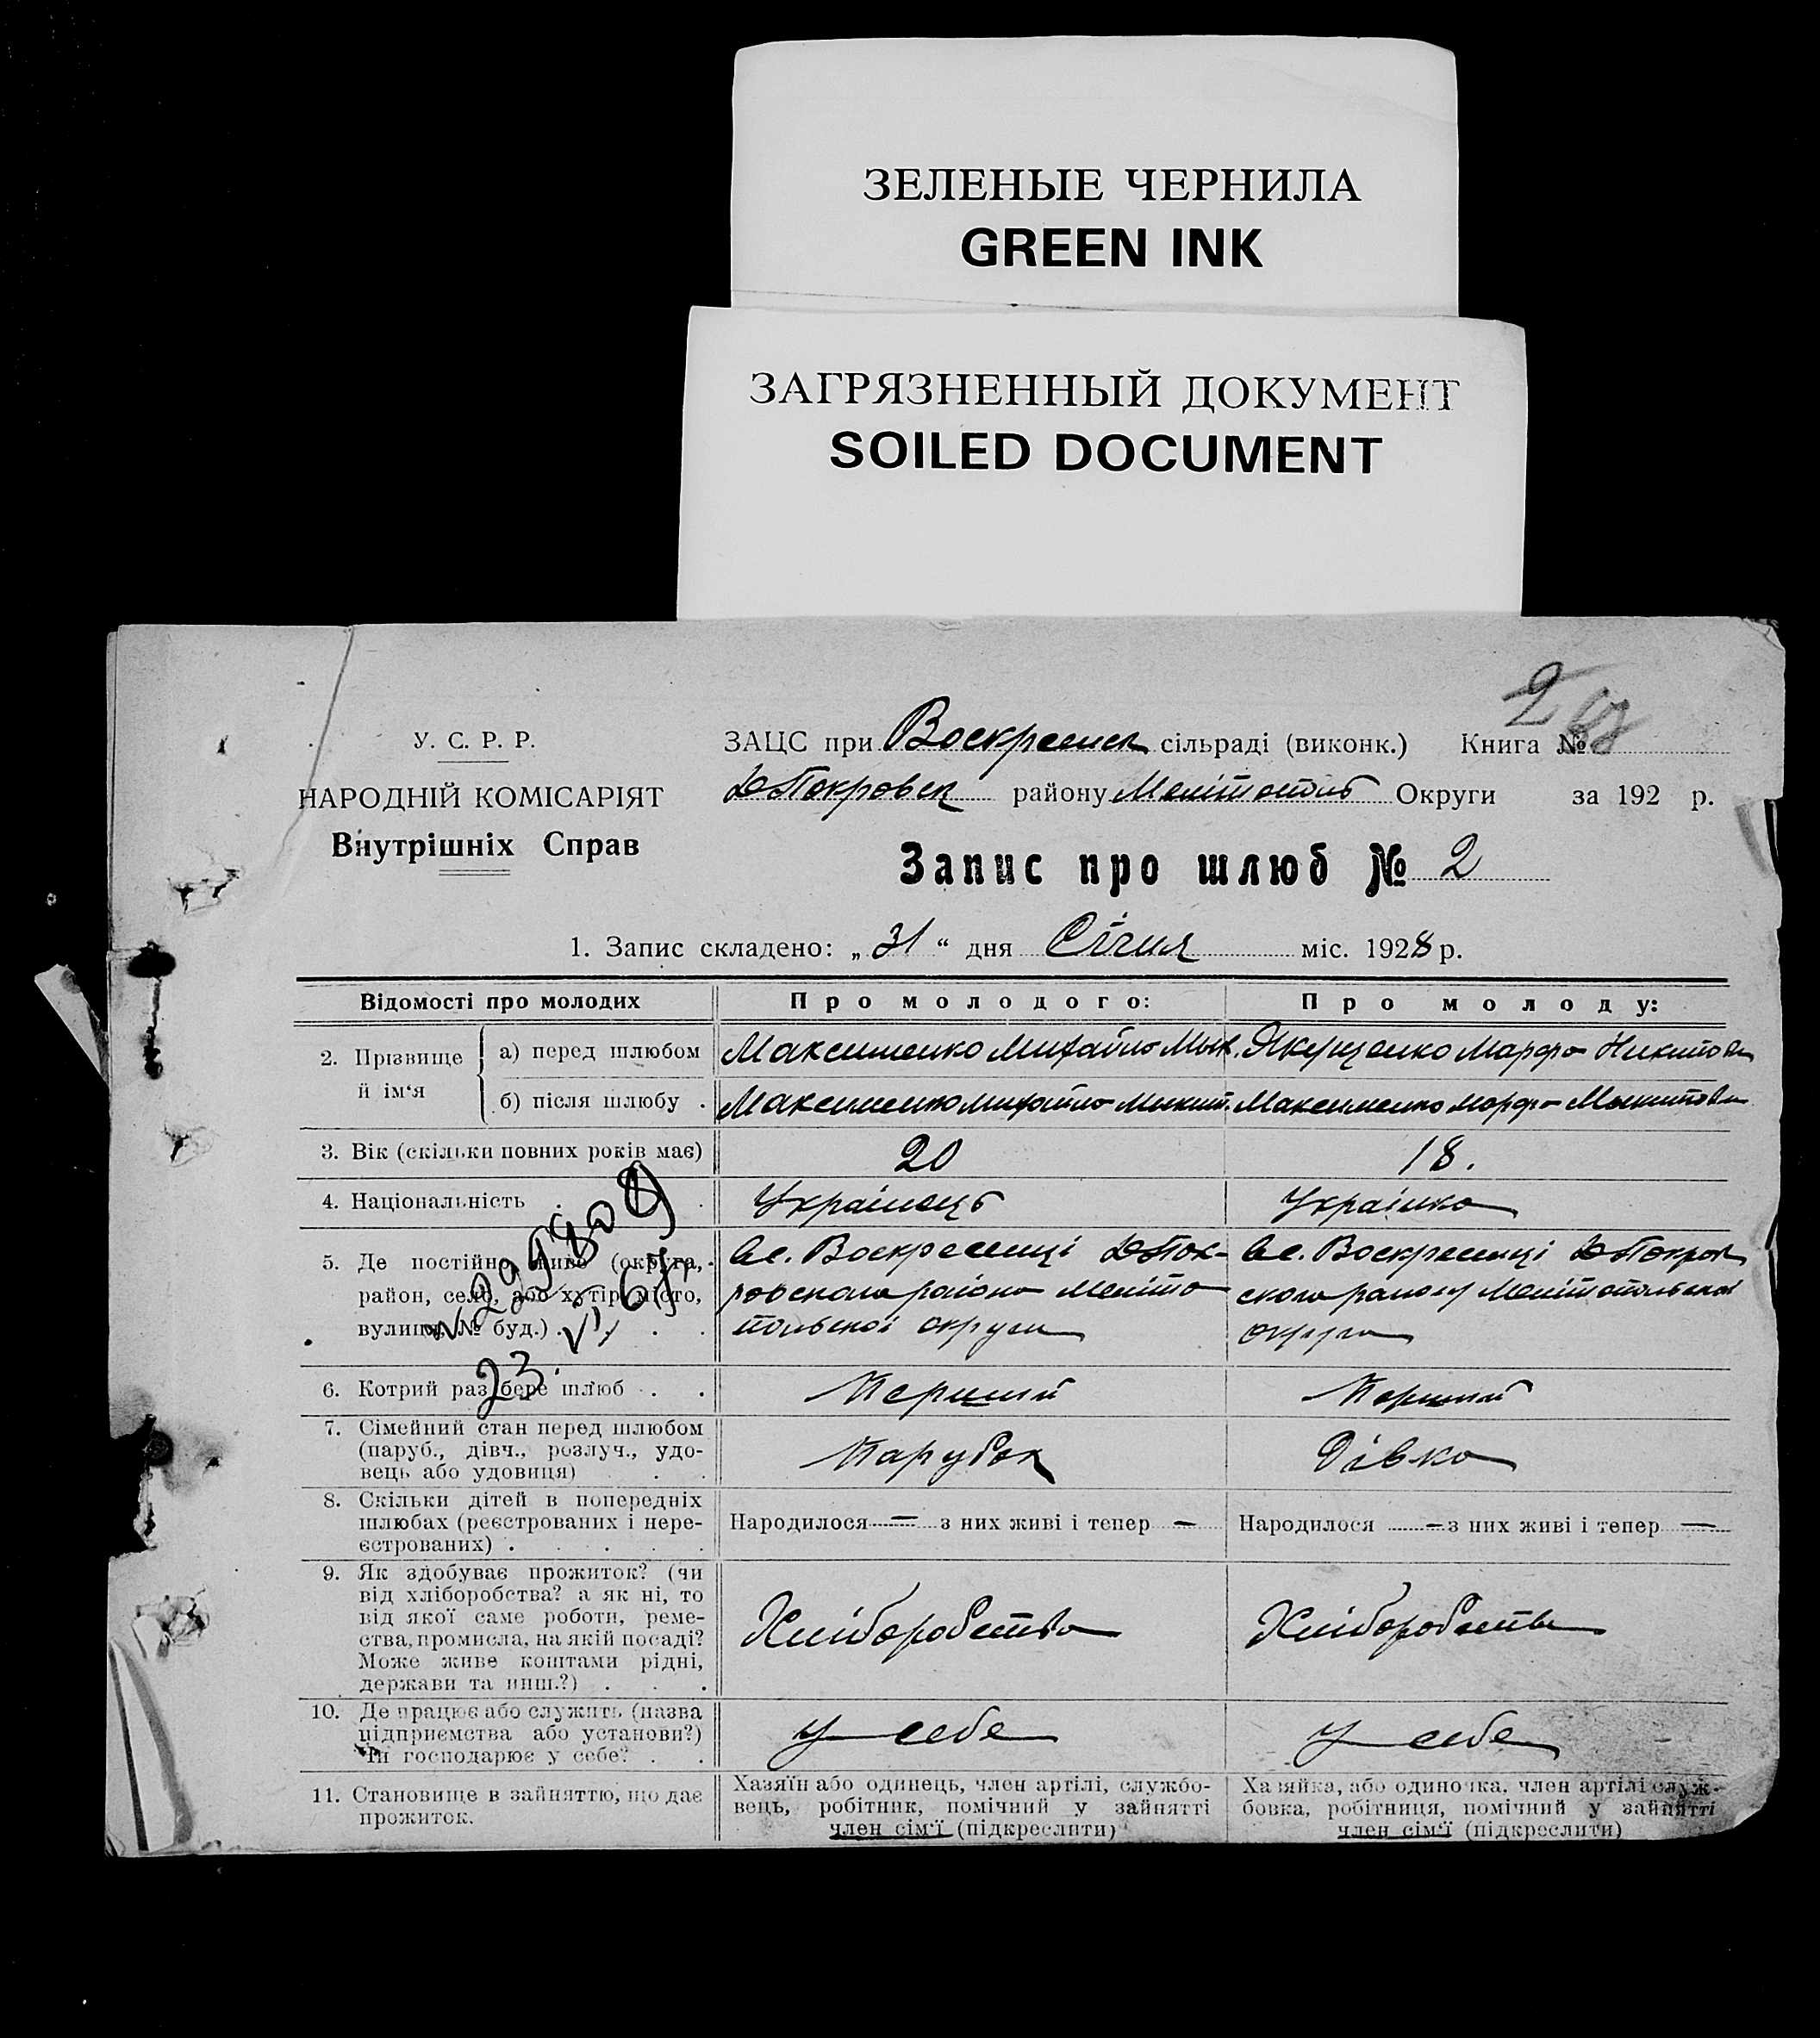 ЗЕЛЕНЫЕ ЧЕРНИЛА
GREEN INK
ЗАГРЯЗНЕННЫЙ ДОКУМЕНТ
SOILED DOCUMENT
2
У. С. Р. Р.
НАРОДНІЙ КОМІСАРІЯТ
Внутрішніх Справ
ЗАЦС при Воскресенск сільраді (виконк.) Книга №
Покровск району Мелітополь Округи за 192 р.
Запис про шлюб № 2
1. Запис складено: „ 31 “ дня Січня міс. 1928 р.
Відомості про молодих Про молодого: Про молоду:
2. Прізвище й ім‘я
а) перед шлюбом Максименко Михайло Мык. Якущенко Марфа Никитовн
б) після шлюбу . Максименко Михайло Микит. Максименко Марфа Мыкитовн
3. Вік (скільки повних років має) 20 18.
4. Національність Українець Українка
5. Де постійно живе (округа,
район, село, або хутір, місто,
вулиця, № буд.) .
Вс. Воскресенці Пок-
ровского району Меліто
польскоі округи
Вс. Воскресенці Покров
ского району Мелітопольскоі
округи
№ 299809
23. VI, 67
6. Котрий раз бере шлюб . . Перший Перший
7. Сімейний стан перед шлюбом
(паруб., дівч., розлуч., удо-
вець або удовиця) . .
Парубок Дівка
8. Скільки дітей в попередніх
шлюбах (реєстрованих і нере-
єстрованих) .
Народилося — з них живі і тепер — Народилося — з них живі і тепер —
9. Як здобуває прожиток? (чи
від хліборобства? а як ні, то
від якої саме роботи, реме-
ства, промисла, на якій посаді?
Може живе коштами рідні,
держави та инш.?) . . .
Хліборобство Хліборобство
10. Де працює або служить (назва
підприємства або установи?)
Чи господарює у себе? . .
У себе У себе
11. Становище в зайняттю, що дає
прожиток.
Хазяїн або одинець, член артілі, службо-
вець, робітник, помічний у зайнятті
член сім‘ї (підкреслити)
Хазяйка, або одиночка, член артілі служ-
бовка, робітниця, помічний у зайнятті
член сім‘ї (підкреслити)